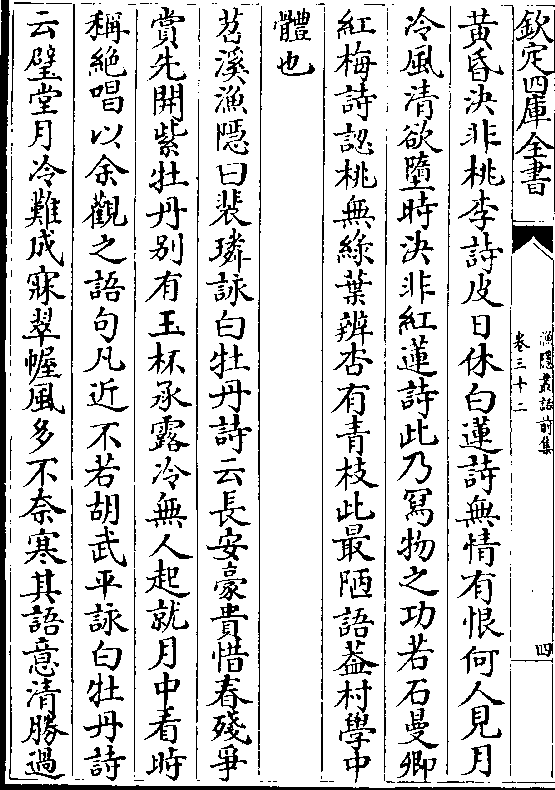 欽定四庫全書
漁隱叢話前集
卷三十二
四
黄昏決非桃李詩皮日休白蓮詩無情有恨何人見月
冷風清欲墮時決非紅蓮詩此乃寫物之功若石曼卿
紅梅詩認桃無綠葉辨杏有青枝此最陋語蓋村學中
體也
苕溪漁隱曰裴璘詠白牡丹詩云長安豪貴惜春殘爭
賞先開紫牡丹别有玉杯承露冷無人起就月中看時
稱絶唱以余觀之語句凡近不若胡武平詠白牡丹詩
云璧堂月冷難成寐翠幄風多不奈寒其語意清勝過